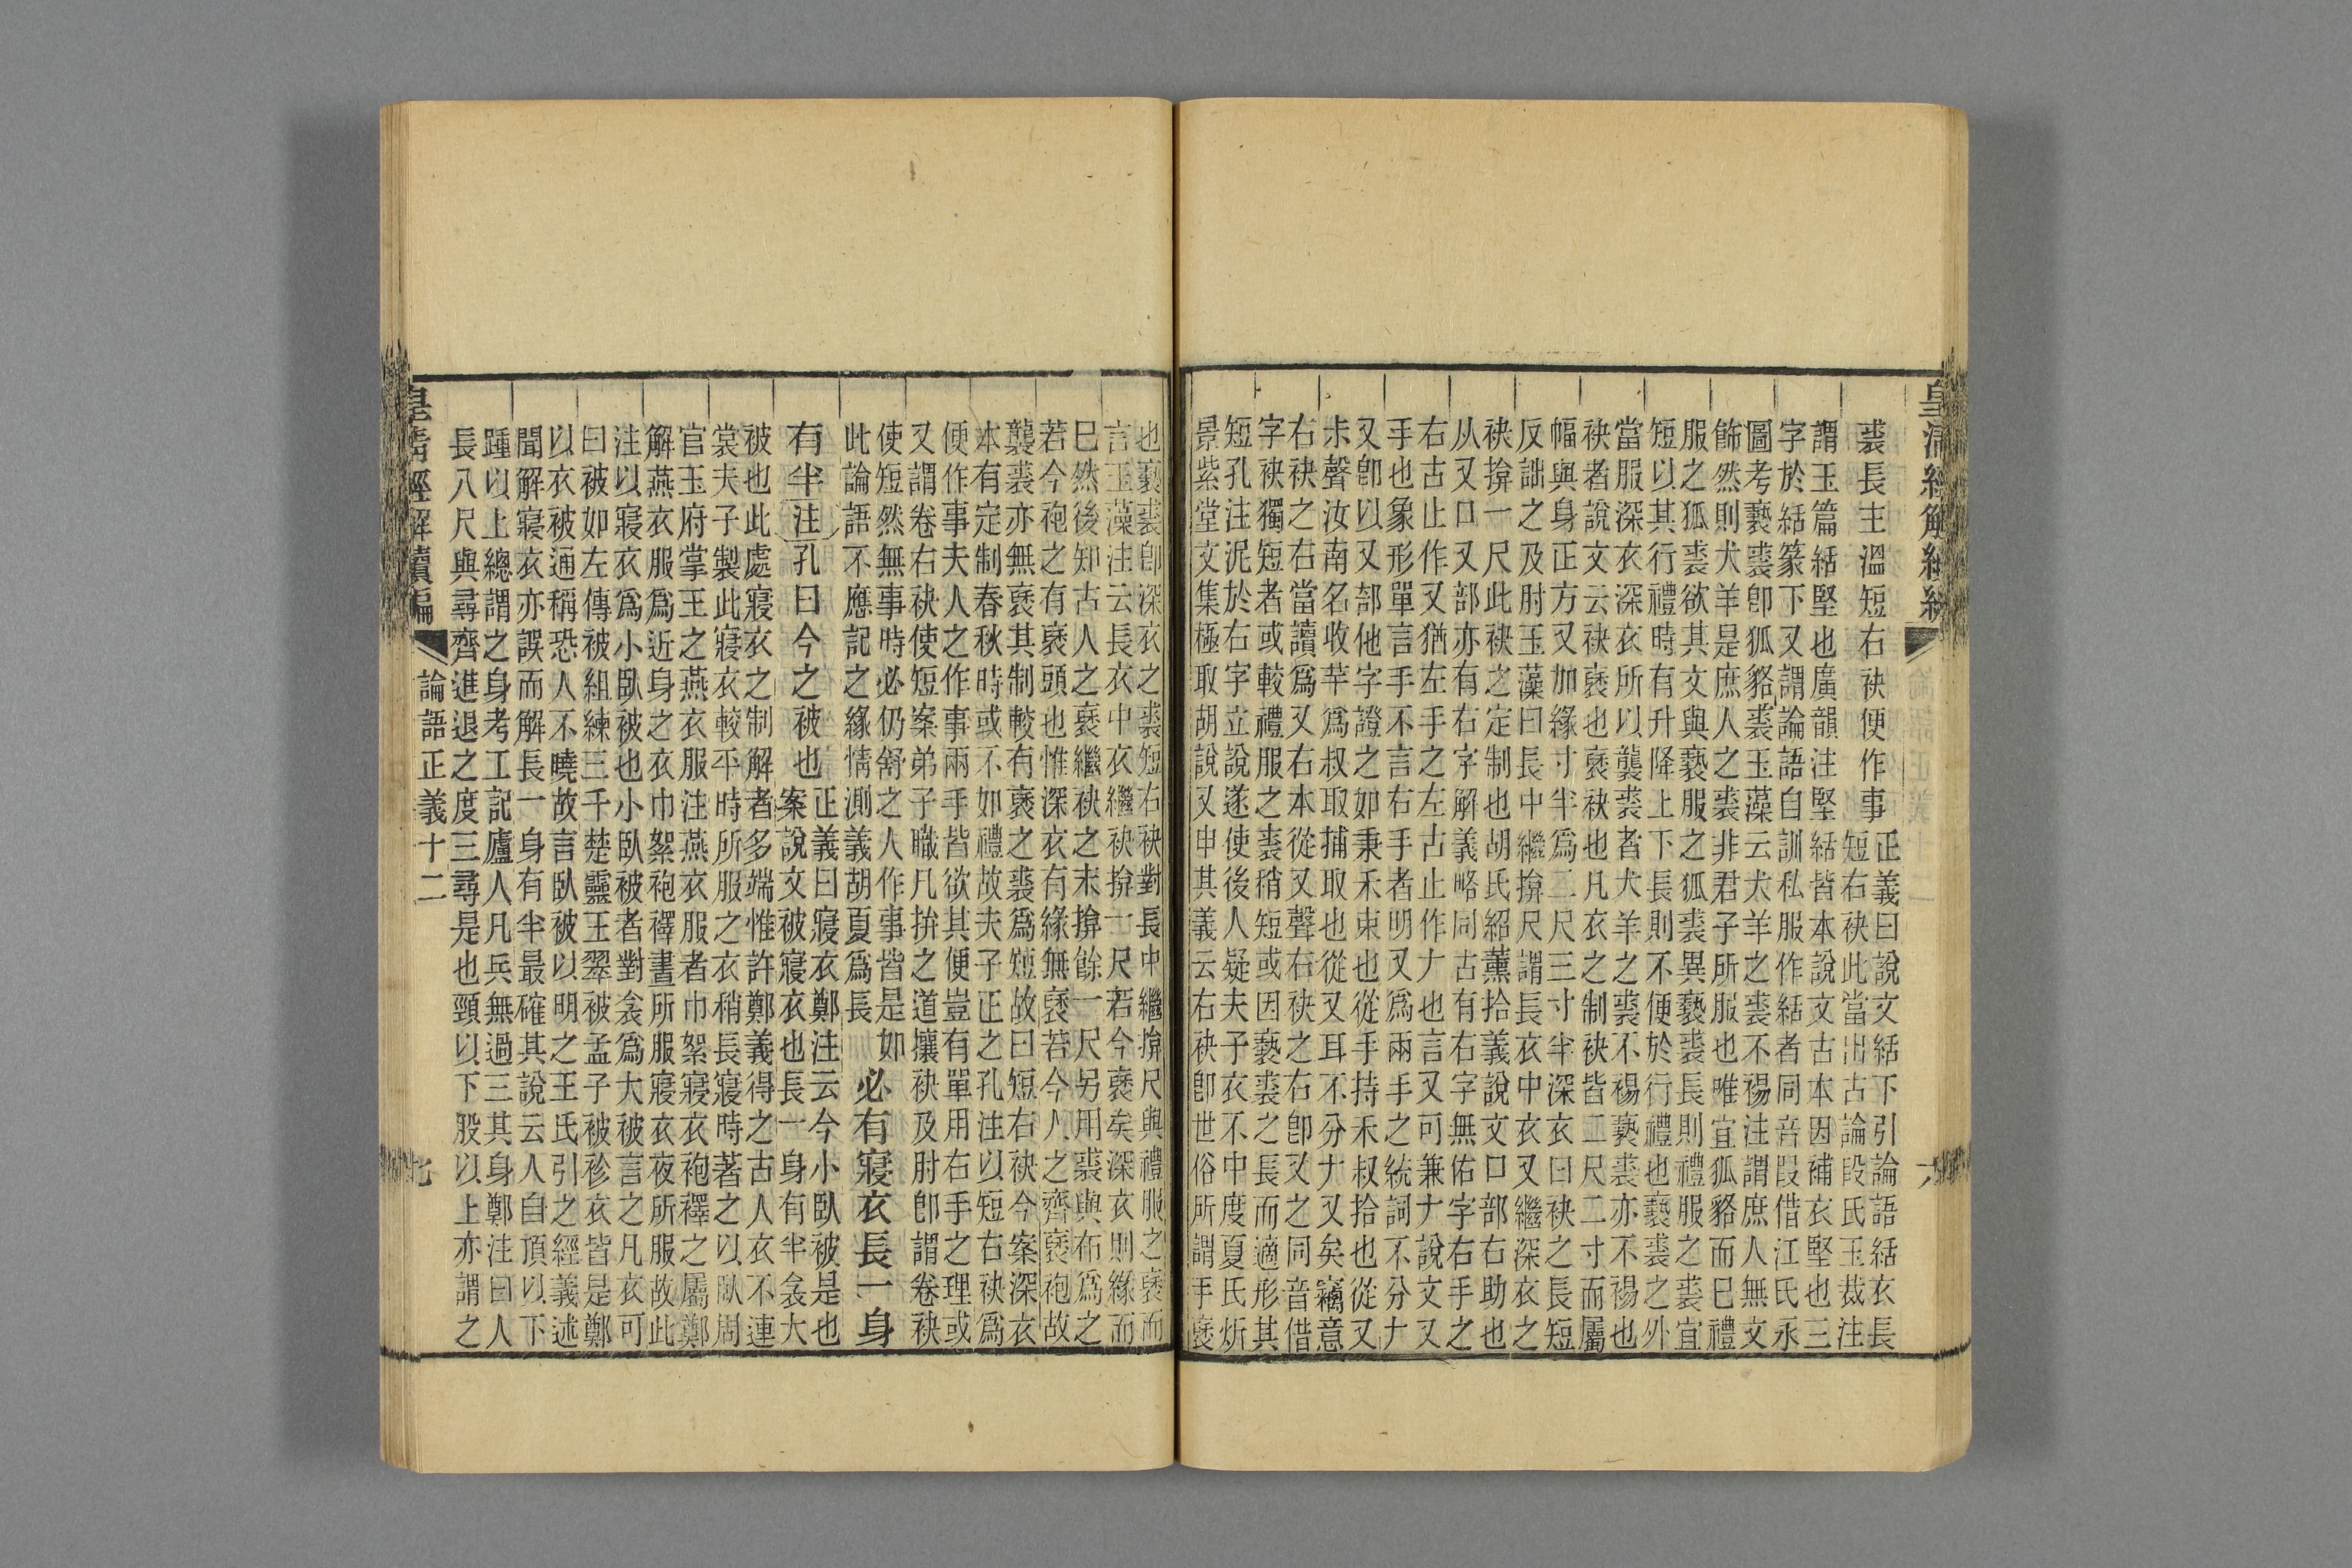 皇清經解續編
六
裘長主溫短右袂便作事
正義曰說文絬下引論語絬衣長
短右袂此當出古論段氏玉裁注
謂玉篇絬堅也廣韻注堅絬皆本說文古本因補衣堅也三
字於絬篆下又謂論語自訓私服作絬者同音叚借江氏永
圖考褻裘卽狐貉裘玉藻云犬羊之裘不裼注謂庶人無文
飾然則犬羊是庶人之裘非君子所服也唯宜狐貉而已禮
服之狐裘欲其文與褻服之狐裘異褻裘長則禮服之裘宜
短以其行禮時有升降上下長則不便於行禮也褻裘之外
當服深衣深衣所以襲裘者犬羊之裘不裼褻裘亦不裼也
袂者說文云袂褎也褎袂也凡衣之制袂皆二尺二寸而屬
幅與身正方又加緣寸半爲二尺三寸半深衣曰袂之長短
反詘之及肘玉藻曰長中繼揜尺謂長衣中衣又繼深衣之
袂揜一尺此袂之定制也胡氏紹薰拾義說文口部右助也
从又口又部亦有右字解義略同古有右字無佑字右手之
右古止作又猶左手之左古止作𠂇也言又可兼𠂇說文又
手也象形單言手不言右手者明又爲兩手之統詞不分𠂇
又卽以又部他字證之如秉禾束也從手持禾叔拾也從又
尗聲汝南名收芌爲叔取捕取也從又耳不分𠂇又矣竊意
右袂之右當讀爲又右本從又聲右袂之右卽又之同音借
字袂獨短者或較禮服之裘稍短或因褻裘之長而適形其
短孔注泥於右字立說遂使後人疑夫子衣不中度夏氏炘
景紫堂文集極取胡說又申其義云右袂卽世俗所謂手褎
也褻裘卽深衣之裘短右袂對長中繼揜尺與禮服之褎而
言玉藻注云長衣中衣繼袂揜一尺若今褎矣深衣則緣而
已然後知古人之褎繼袂之末揜餘一尺另用裘與布爲之
若今袍之有褎頭也惟深衣有緣無褎若今人之齊褎袍故
襲裘亦無褎其制較有褎之裘爲短故曰短右袂今案深衣
本有定制春秋時或不如禮故夫子正之孔注以短右袂爲
便作事夫人之作事兩手皆欲其便豈有單用右手之理或
又謂卷右袂使短案弟子職凡拚之道攘袂及肘卽謂卷袂
使短然無事時必仍舒之人作事皆是如
此論語不應記之緣情測義胡夏爲長
必有寢衣長一身
有半注孔曰今之被也
正義曰寢衣鄭注云今小臥被是也
案說文被寢衣也長一身有半衾大
被也此處寢衣之制解者多端惟許鄭義得之古人衣不連
裳夫子製此寢衣較平時所服之衣稍長寢時著之以臥周
官玉府掌王之燕衣服注燕衣服者巾絮寢衣袍襗之屬鄭
解燕衣服爲近身之衣巾絮袍襗晝所服寢衣夜所服故此
注以寢衣爲小臥被也小臥被者對衾爲大被言之凡衣可
曰被如左傳被組練三千楚靈王翠被孟子被袗衣皆是鄭
以衣被通稱恐人不曉故言臥被以明之王氏引之經義述
聞解寢衣亦誤而解長一身有半最確其說云人自頂以下
踵以上總謂之身考工記廬人凡兵無過三其身鄭注曰人
長八尺與尋齊進退之度三尋是也頸以下股以上亦謂之
皇清經解續編
論語正義十二
七